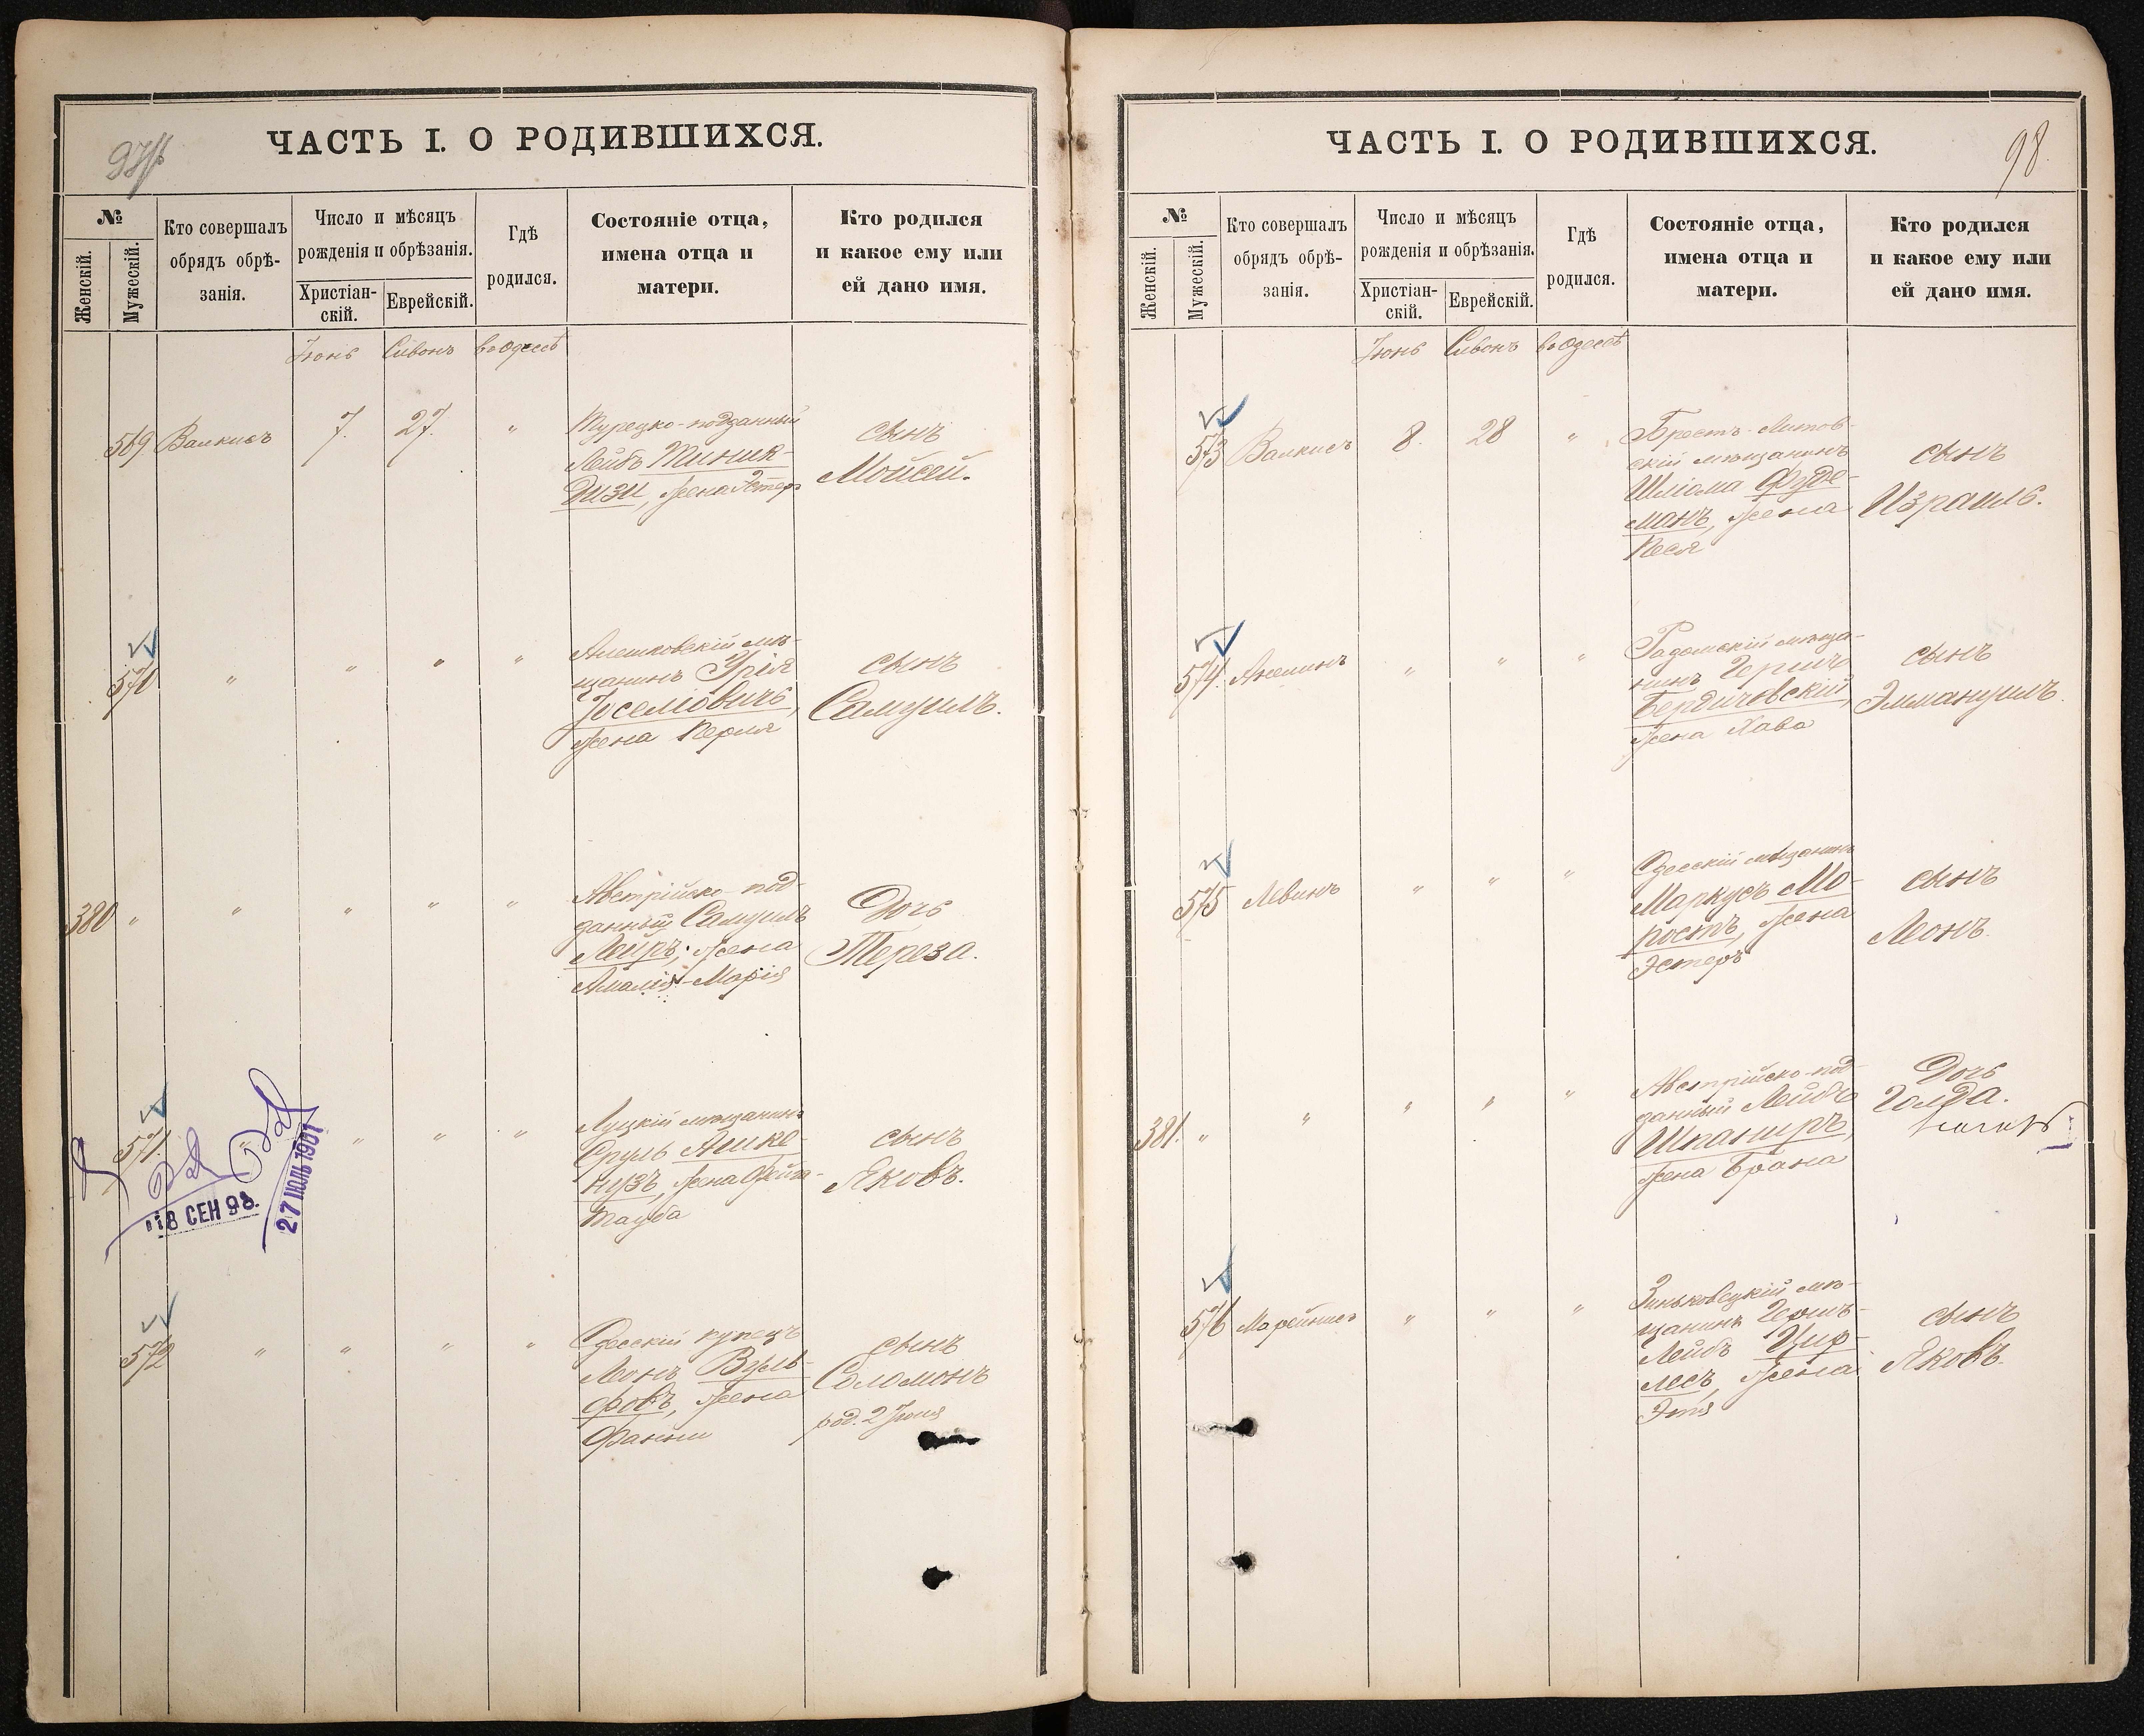 ЧАСТЬ I. О РОДИВШИХСЯ.
№
Женскій.
Мужескій.
Кто совершалъ
обрядъ обрѣ-
занія.
Число и мѣсяцъ
рожденія и обрѣзанія.
Христіан-
скій.
Еврейскій.
Гдѣ
родился.
Состояніе отца,
имена отца и
матери.
Кто родился
и какое ему или
ей дано имя.
Іюнь Сивонъ въ Одессѣ
569 Валкисъ 7. 27. "
Турецко-подданный
Лейбъ Тиник-
дизи, жена Эстеръ
сынъ
Мойсей.
570 " " " "
Алешковскій мѣ-
щанинъ Урія
Іоселіовичъ,
жена Перля
сынъ
Самуилъ.
380 " " " " "
Австрійско-под-
данный Самуилъ
Лейръ, жена
Амалія-Марія
Дочь
Тереза.
571. " " "
Луцкій мѣщанинъ
Сруль Ашке-
нузъ, жена Фейга-
Тауба
сынъ
Яковъ.
18 СЕН 98.
27 ІЮЛЬ 1901
572 " " " "
Одесскій купецъ
Леонъ Вуль-
фовъ, жена
Фанни
сынъ
Соломонъ
род. 2 Іюня
ЧАСТЬ I. О РОДИВШИХСЯ.
98.
№
Женскій.
Мужескій.
Кто совершалъ
обрядъ обрѣ-
занія.
Число и мѣсяцъ
рожденія и обрѣзанія.
Христіан-
скій.
Еврейскій.
Гдѣ
родился.
Состояніе отца,
имена отца и
матери.
Кто родился
и какое ему или
ей дано имя.
Іюнь Сивонъ въ Одессѣ
573 Валкисъ 8. 28 "
Брестъ-Литов-
скій мѣщанинъ
Шліома Фуде-
манъ, жена
Песя
сынъ
Израиль.
574. " " "
Радомскій мѣща-
нинъ Гершъ
Бердичовскій,
жена Хава
сынъ
Эммануилъ.
575 Левинъ " " "
Одесскій мѣщанинъ
Маркусъ Мо-
ростъ, жена
Эстеръ
сынъ
Леонъ.
381. " " " " "
Австрійско-под-
данный Лейбъ
Шпаниръ,
жена Брана
Дочь
Голда.
576 " " "
Зиньковецкій мѣ-
щанинъ Гершъ-
Лейбъ Цир-
лесъ, жена
Этя
сынъ
Яковъ.